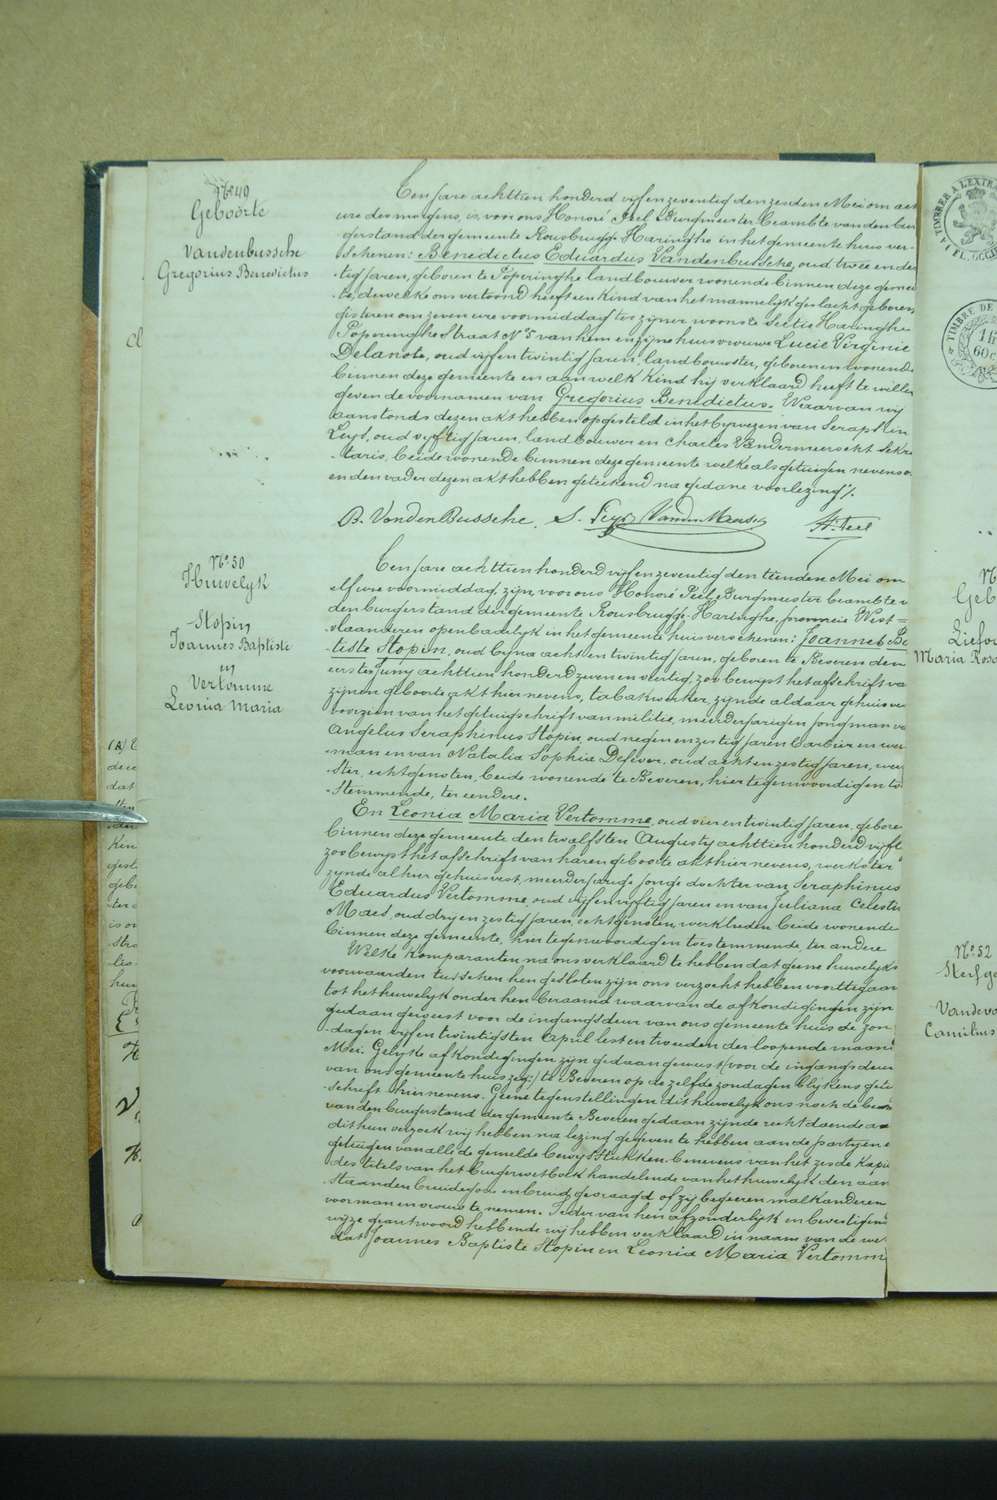 N° 49
Geboorte
Vandenbussche
Gregorius Benedictus
Een jare achttien honderd vijf en zeventig den zesden Mei om acht
ure des morgens, is, voor ons Honoré Feel Burgmeester beambte van den bur
gerstand der gemeente Rousbrugge-Haringhe in het gemeente huis ver-
schenen: Benedictus Eduardus Vandenbussche, oud twee en der
tig jaren, geboren te Poperinghe landbouwer wonende binnen deze gemeen
te, dewelke ons vertoond heeft een kind van het mannelyk geslacht geboren
gisteren om zeven ure voormiddag ter zijner woonste sectie Haringhe
Poperinghe Straat N° 5 van hem en zijne huisvrouwe Lucie Virginie
Delanote, oud vijf en twintig jaren, landbouwster, geboren en wonende
binnen deze gemeente en aan welk kind hij verklaard heeft te willen
geven de voornamen van Gregorius Benedictus. Waarvan wij
aanstonds dezen akt hebben opgesteld in het bywezen van Seraphin
Leys, oud vijftig jaren, landbouwer en Charles Vandermeersch sekre
taris, beide wonende binnen deze gemeente welke als getuigen nevens ons
en den vader dezen akt hebben geteekend na gedane voorlezing ./.
B. VandenBussche. S. Leys VanderMeersch H. Feel
N° 50
Huwelyk
Stopin
Joannes Baptiste
en
Vertomme
Leonia Maria
Een jare achttien honderd vijf en zeventig den tienden Mei om
elf ure voormiddag, zijn, voor ons Honoré Feel Burgmeester beambte v
den burgerstand der gemeente Rousbrugge-Haringhe, provincie West=
vlaanderen openbaelijk in het gemeente huis verschenen: Joannes Ba
tiste Stopin, oud byna acht en twintig jaren, geboren te Beveren den
eersten Juny achttien honderd zeven en veertig, zoo bewyst het afschrift va
zijnen geboorte akt hier nevens, tabakwerker, zijnde aldaar gehuisves
voorzien van het getuigschrift van militie, meerderjarigen jongman va
Angelus Seraphinus Stopin, oud negen en zestig jaren barbier en wer
man en van Natalia Sophia Defever, oud acht en zestig jaren, wer
ster, echtgenoten, beide wonende te Beveren, hier tegenwoordig en to
stemmende, ter eendere.
En Leonia Maria Vertomme, oud vier en twintig jaren, gebore
binnen deze gemeente den twaalfsten Augusty achttien honderd vijft
zoo bewyst het afschrift van haren geboorte akt hier nevens, werkster
zynde alhier gehuisvest, meerderjarige jonge dochter van Seraphinus
Eduardus Vertomme, oud vijf en vijftig jaren en van Juliana Celestin
Maes, oud dry en zestig jaren, echtgenoten, werklieden beide wonende
binnen deze gemeente, hier tegenwoordig en toestemmende ter andere
Welke komparanten na ons verklaard te hebben dat geene huwelyks
voorwaarden tusschen hen gesloten zijn ons verzocht hebben voort te gaan
tot het huwelyk onder hen beraamd waarvan de afkondigingen zijn
gedaan geweest voor de ingangsdeur van ons gemeente huis de zon
dagen vijf en twintigsten April lest en tweeden der loopende maand
Mei. Gelyke afkondigingen zijn gedaan geweest (voor de ingangs deur
van ons gemeente huis zeg:) te Beveren op de zelfde zondagen blykens getui
schrift hier nevens. Geene tegenstellingen dit huwelyk ons noch de beam
van den burgerstand der gemeente Beveren gedaan zijnde recht doende aen
dit hun verzoek wij hebben na lezing gegeven te hebben aan de partyen e
getuigen van alle de gemelde bewijsstukken benevens van het zesde kapi
des titels van het burgerwetboek handelende van het huwelyk den aan
staanden bruidegom en bruid gevraagd of zij begeeren malkanderen
voor man en vrouw te nemen. Ieder van hen afzonderlyk en bevestigend
wyze geantwoord hebbende wij hebben verklaard in naam van de we
dat Joannes Baptiste Stopin en Leonia Maria Vertomm
TIMBRE A L'EXTRA
TIMBRE DE
60 c
Geb
Maria Rosa
N° 52
Sterfge
Vandevo
Camilius